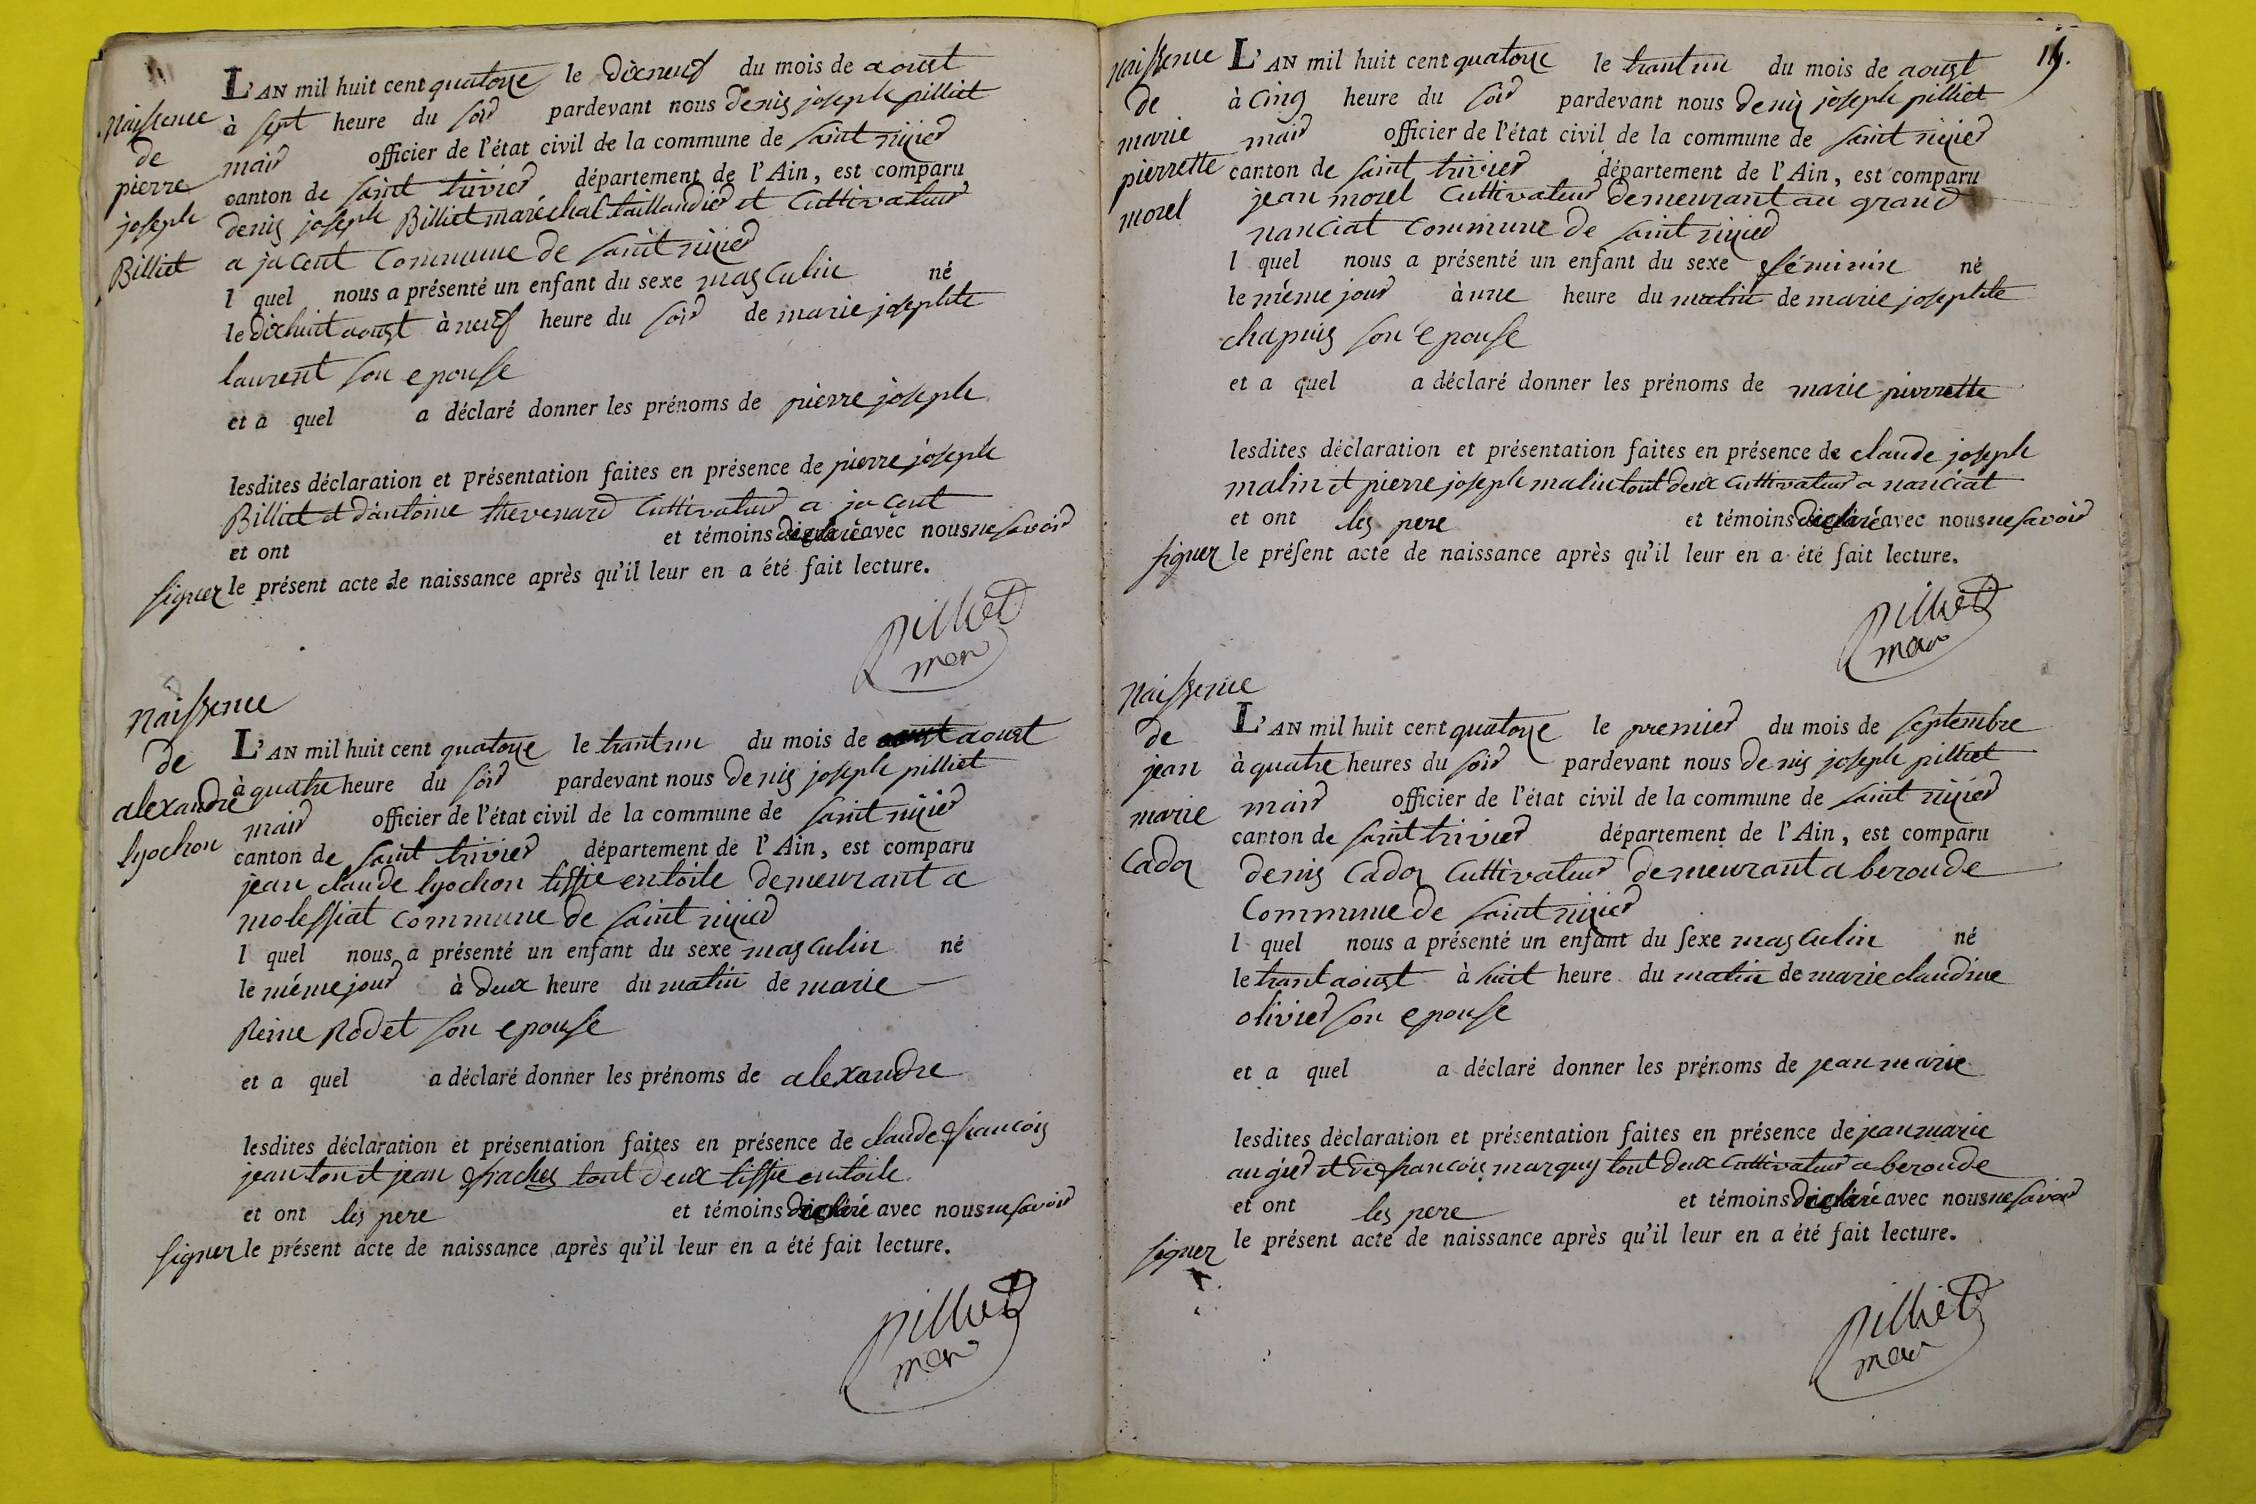 naissence
de
pierre
joseph
Billiet
L'AN mil huit cent quatorze le dixneuf du mois de aoust
à sept heure du soir pardevant nous denis joseph pilliet
mair officier de l'état civil de la commune de saint nizier
canton de saint trivier département de l'Ain, est comparu
denis joseph Billiet maréchal taillandier et Cultivateur
a jacent Commune de saint nizier
l quel nous a présenté un enfant du sexe masculin né
le dixhuit aoust à neuf heure du soir de marie josephte
laurent son epouse
et a quel a déclaré donner les prénoms de pierre joseph
lesdites déclaration et présentation faites en présence de pierre joseph
Billiet et d'antoine thevenard Cultivateur a jacent
et ont et témoins declaré avec nous ne savoir
signer le présent acte de naissance après qu'il leur en a été fait lecture.
pilliet
mair
naissence
de
alexandre
lyochon
L'AN mil huit cent quatorze le trantun du mois de aoust
à quatre heure du soir pardevant nous denis joseph pilliet
mair officier de l'état civil de la commune de saint nizier
canton de saint trivier département de l'Ain, est comparu
jean claude lyochon tissie entoile demeurant a
molessiat commune de saint nizier
l quel nous a présenté un enfant du sexe masculin né
le même jour à deux heure du matin de marie
Reine Rodet son epouse
et a quel a déclaré donner les prénoms de alexandre
lesdites déclaration et présentation faites en présence de claude francois
jeanton et jean tout deux tissie entoile
et ont les pere et témoins declaré avec nous ne savoir
signer le présent acte de naissance après qu'il leur en a été fait lecture.
pilliet
mair
naissence
de
marie
pierrette
morel
L'AN mil huit cent quatorze le trantun du mois de aoust
à Cinq heure du soir pardevant nous denis joseph pilliet
mair officier de l'état civil de la commune de saint nizier
canton de saint trivier département de l'Ain, est comparu
jean morel Cultivateur demeurant au grand
nanciat Commune de saint nizier
l quel nous a présenté un enfant du sexe féminin né
le même jour à une heure du matin de marie josephte
chapuis son epouse
et a quel a déclaré donner les prénoms de marie pierrette
lesdites déclaration et présentation faites en présence de claude joseph
malin et pierre joseph malin tout deux Cultivateur a nanciat
et ont les pere et témoins declaré avec nous ne savoir
signer le présent acte de naissance après qu'il leur en a été fait lecture.
pilliet
mair
naissence
de
jean
marie
Cadoz
L'AN mil huit cent quatorze le premier du mois de septembre
à quatre heures du soir pardevant nous denis joseph pilliet
mair officier de l'état civil de la commune de saint nizier
canton de saint trivier département de l'Ain, est comparu
denis Cadoz Cultivateur demeurant a beroude
Commune de saint nizier
l quel nous a présenté un enfant du sexe masculin né
le trant aoust à huit heure du matin de marie claudine
olivier son epouse
et a quel a déclaré donner les prénoms de jean marie
lesdites déclaration et présentation faites en présence de jean marie
augier et de francois marquis tout deux Cultivateur a beroude
et ont les pere et témoins declaré avec nous ne savoir
signer le présent acte de naissance après qu'il leur en a été fait lecture.
pilliet
mair